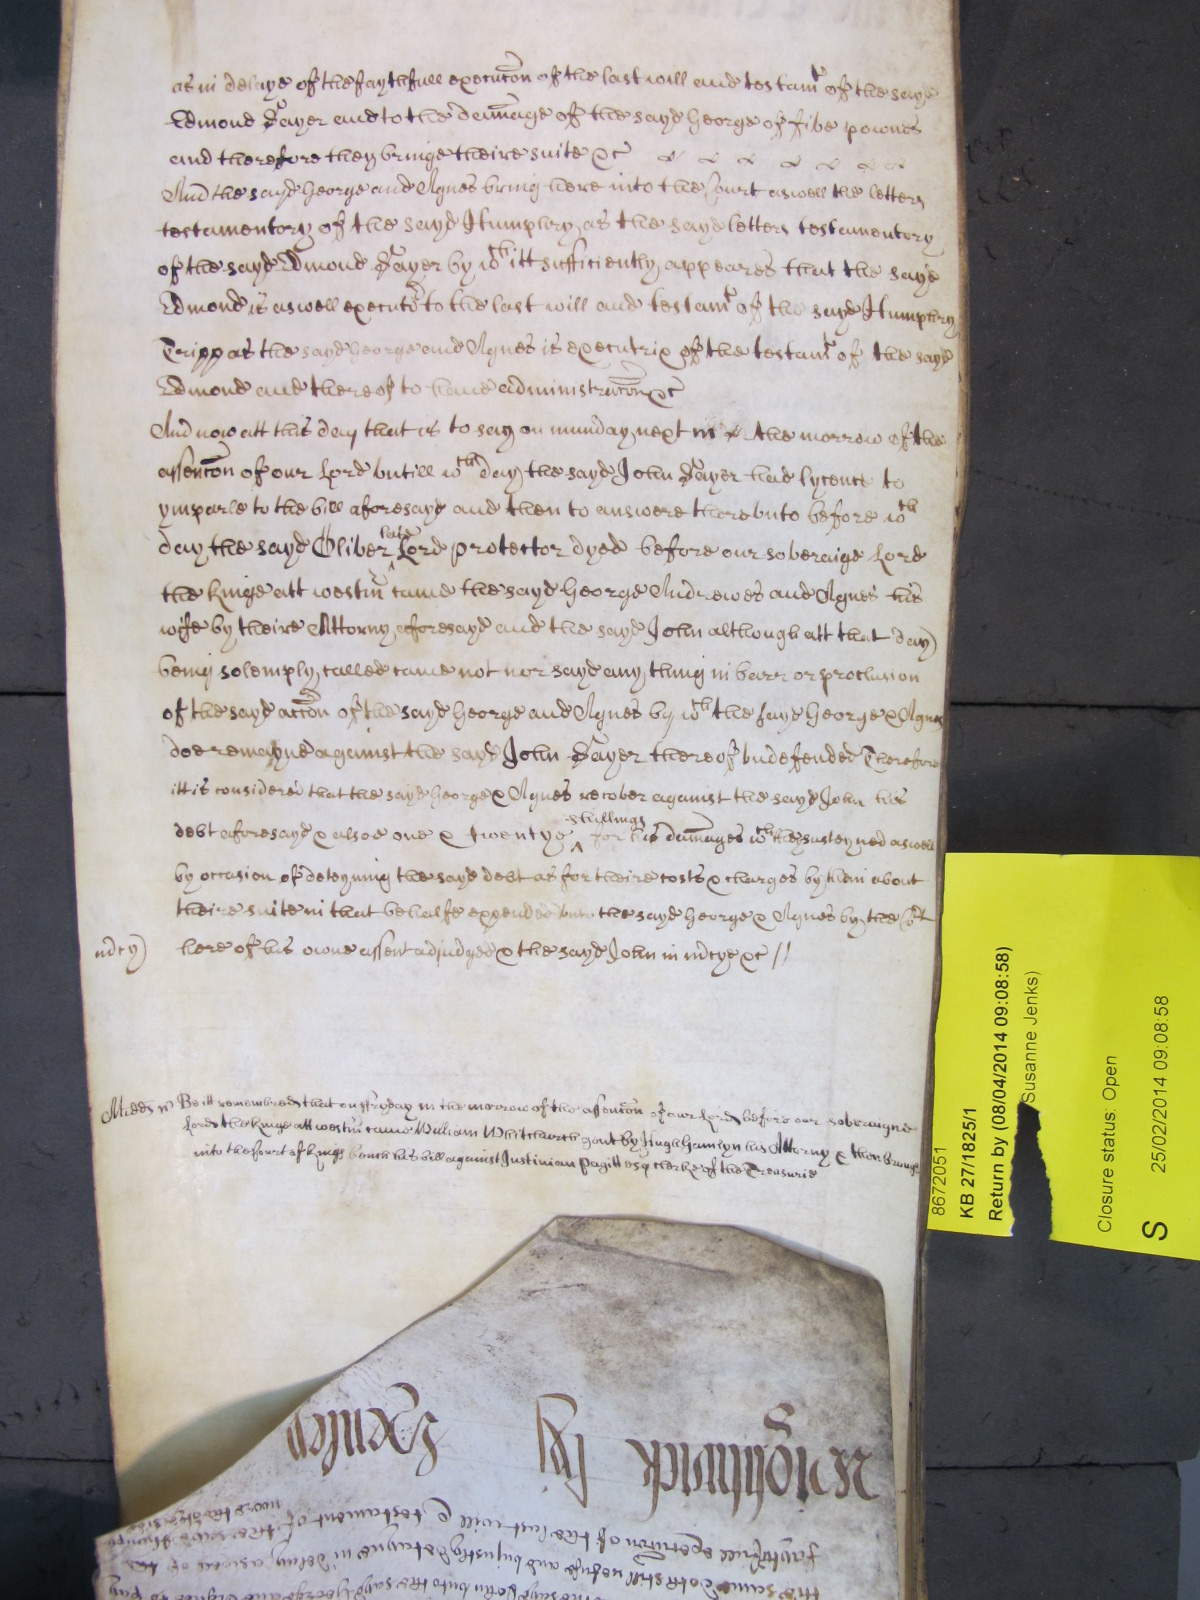 as in delaye of the faythfull execucon of the last will and testamt of the sayd
Edmond Sayer and to the damage of the sayd George of five pownds
and therefore they bringe theire suite &c
And the sayd George and Agnes bring here into the Court aswell the letters
testamentory of the sayd Humphry as the sayd letters testamentory
of the sayd Edmond Sayer by wch itt sufficiently appeares that the sayd
Edmond is aswell executor to the last will and testamt of the sayd Humphry
Tripp as the sayd George and Agnes is executrix of the testamt of the sayd
Edmond and thereof to have administracon &c
And now att this day that is to say on munday next the morrow of the
assencon of our Lord untill wch day the sayd John Sayer had lycence to
ymparle to the bill aforesayd and then to answere thereunto before wch
day the sayd Oliver late Lord protector dyed before our soveraigne Lord
the kinge att westm came the sayd George Andrewes and Agnes his
wife by theire Attorny aforesayd and the sayd John although att that day
being solemply called came not nor sayd any thing in barr or preclusion
of the sayd accon of the sayd George and Agnes by wch the sayd George & Agnes
doe remayne against the sayd John Sayer thereof undefended Therefore
itt is considered that the sayd George & Agnes recover against the sayd John his
debt aforesayd & alsoe one & twentye shillings for his damages wch they susteyned aswell
by occasion of deteyning the sayd debt as for theire costs & charges by them about
theire suite in that behalfe expended unto the sayd George & Agnes by the Cort
mcy here of his owne assent adjudged & the sayd John in mcye &c //
Be itt remembred that on ffryday in the morrow of the assencon of our Lord before our soveraigne
Lord the kinge att westm came William Whitchurch gent by Hugh Hamlyn his Attorny & then brought
into the Court of kings bench his bill against Justinian Pagitt esq clerke of the Treasurie
8672051
KB 27/1825/1
Return by (08/04/2014 09:08:58)
Susanne Jenks)
Closure status: Open
S 25/02/2014 09:08:58